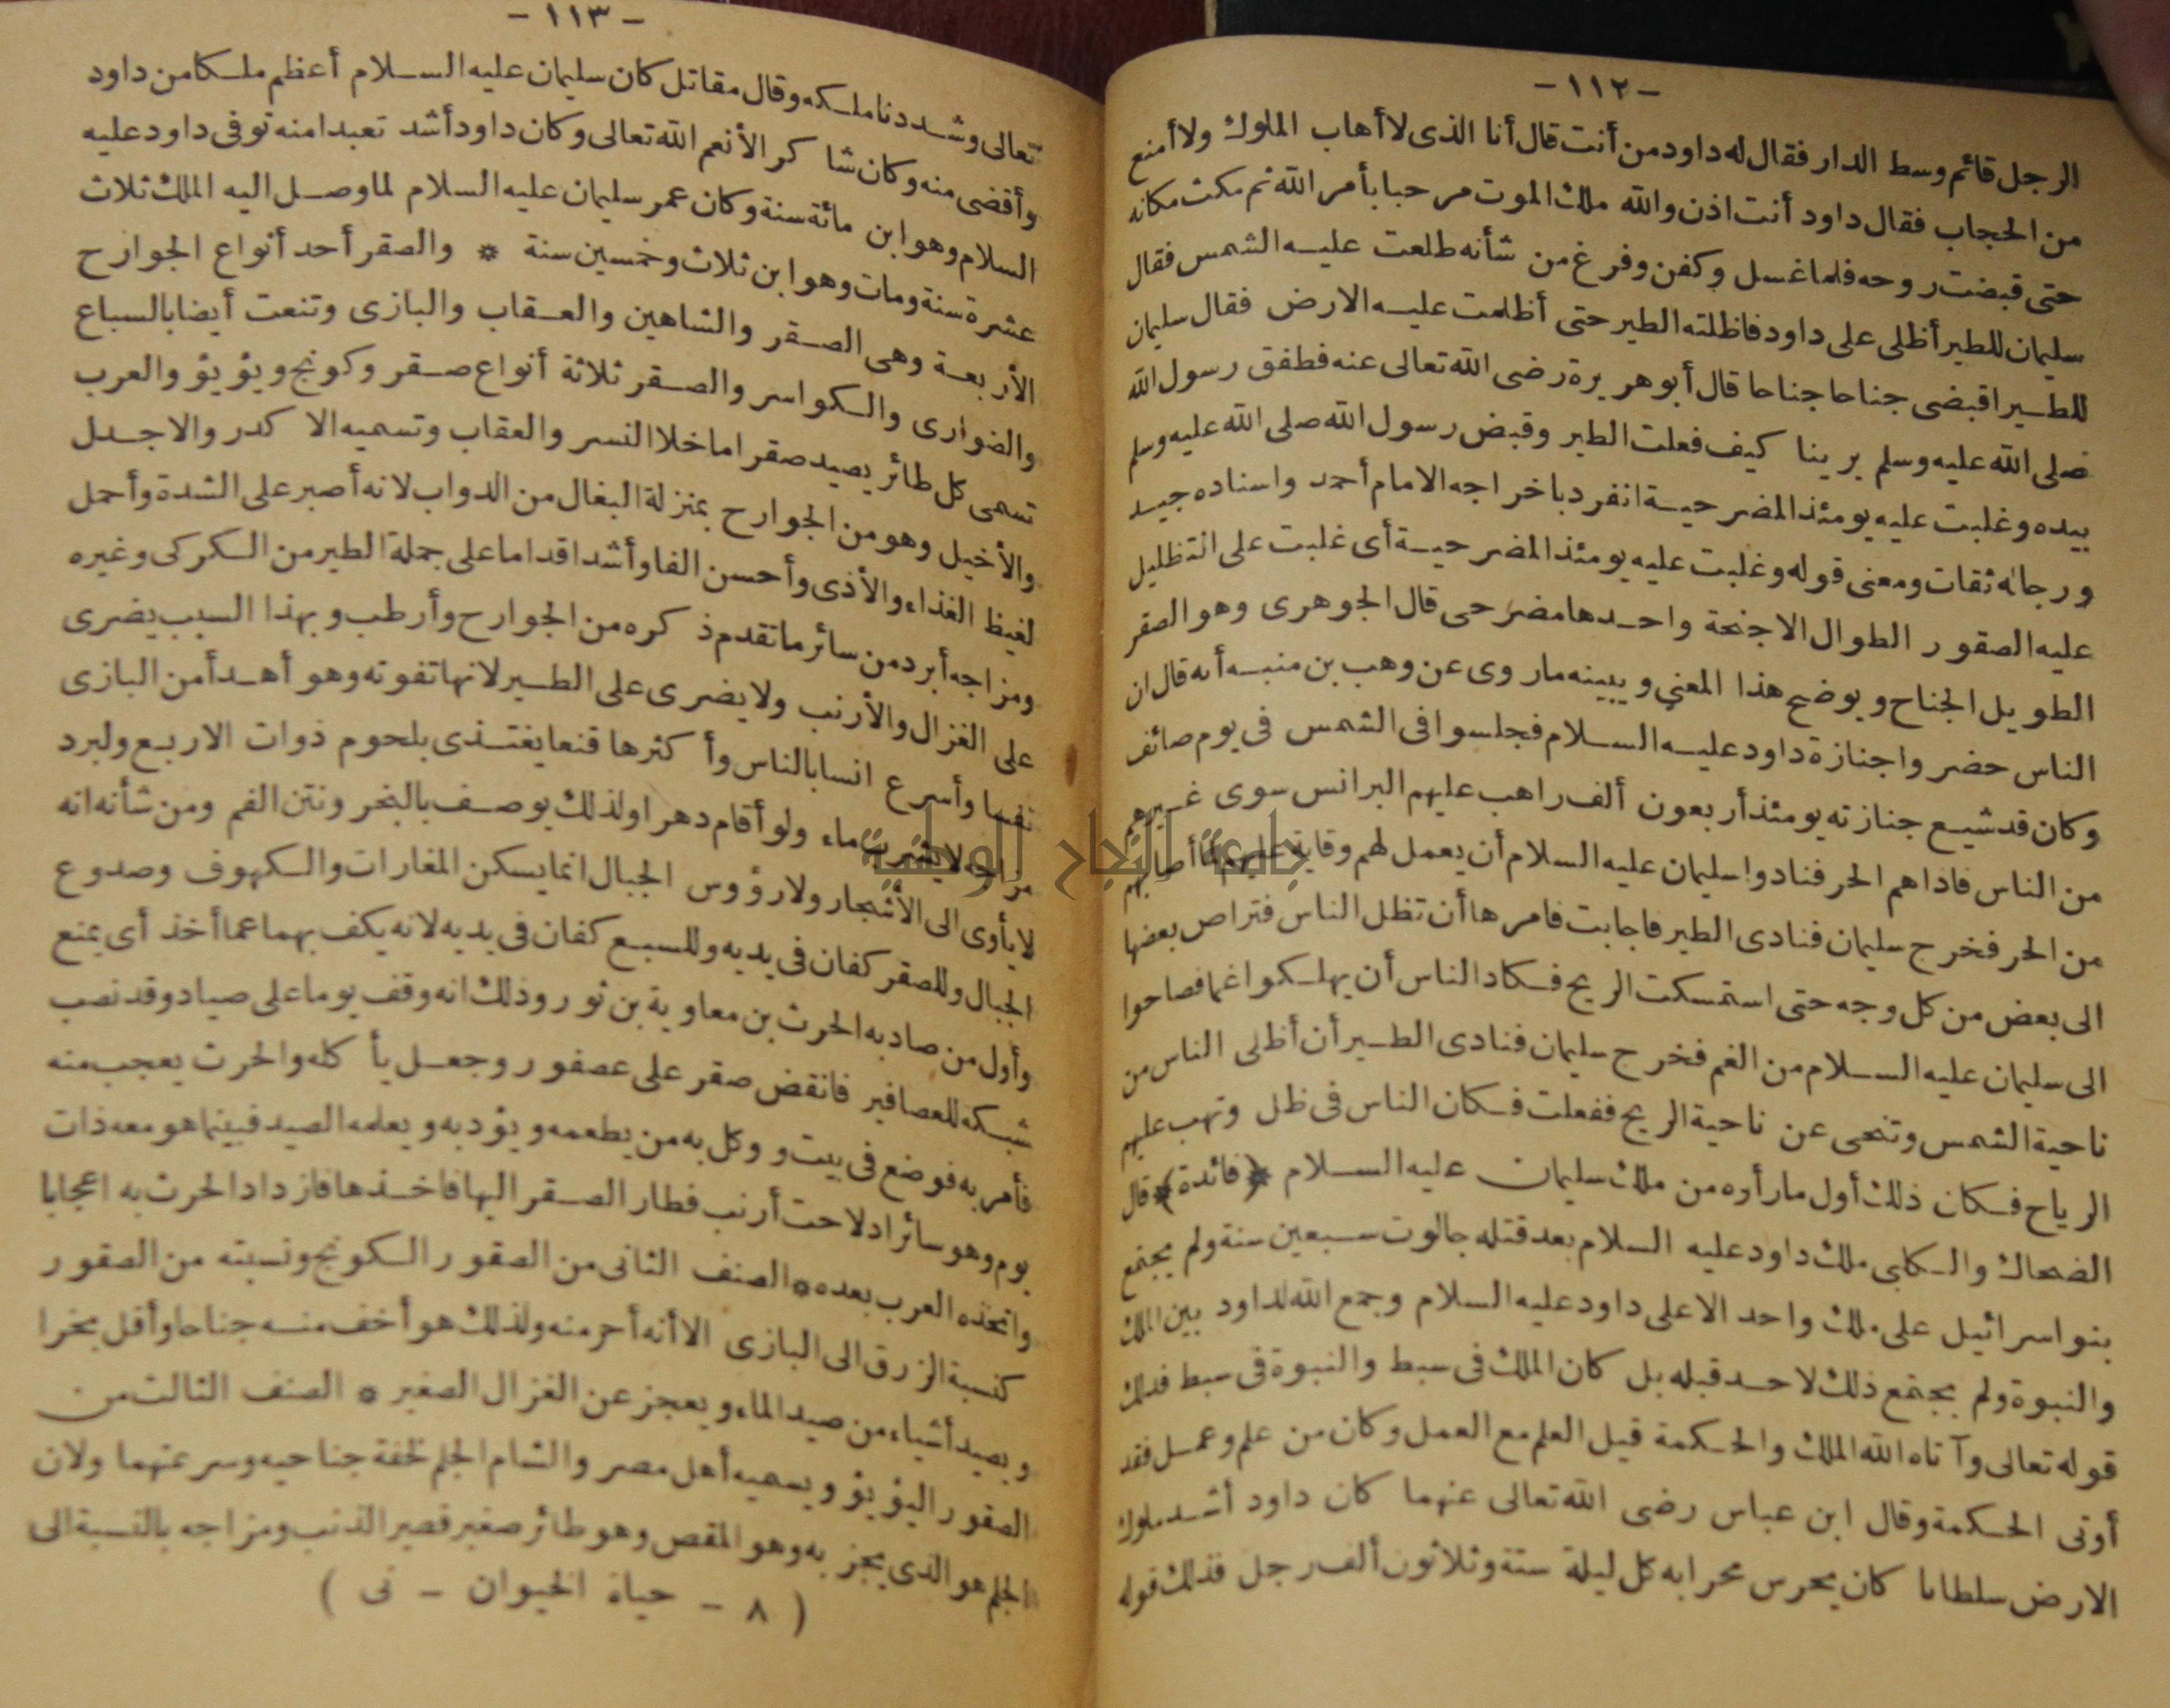 -١١٢-
الرجل قائم وسط الدار فقال له داود من أنت قال أنا الذى لا أهاب الملوك ولا أمنع
من الحجاب فقال داود أنت اذن والله ملك الموت مرحبا بأمر الله ثم مكث مكانه
حتى قبضت روحه فلما غسل وكفن وفرغ من شأنه طلعت عليه الشمس فقال
سليمان للطير أظلى على داود فاظلته الطير حتى أظلمت عليه الارض فقال سليمان
للطير اقبضى جناحا جناحا قال أبو هريرة رضى الله تعالى عنه فطفق رسول الله
صلى الله عليه وسلم يرينا كيف فعلت الطير وقبض رسول الله صلى الله عليه وسلم
بيده وغلبت عليه يومئذ المضرحية انفرد باخراجه الامام أحمد واسناده جيد
ورجاله ثقات ومعنى قوله وغلبت عليه يومئذ المضرحية أى غلبت على التظليل
عليه الصقور الطوال الاجنحة واحدها مضرحى قال الجوهرى وهو الصقر
الطويل الجناح ويوضح هذا المعنى ويبينه ماروى عن وهب بن منبه أنه قال ان
الناس حضروا جنازة داود عليه السلام فجلسوا فى الشمس فى يوم صائف
وكان قد شيع جنازته يومئذ أربعون ألف راهب عليهم البرانس سوى غيرهم
من الناس فاذاهم الحر فنادوا سليمان عليه السلام أن يعمل لهم وقاية عليهم لما أصابهم
من الحر فخرج سليمان فنادى الطير فاجابت فامرها أن تظل الناس فتراص بعضها
الى بعض من كل وجه حتى استمسكت الريح فكاد الناس أن يهلكوا غما فصاحوا
الى سليمان عليه السلام من الغم فخرج سليمان فنادى الطير أن أظلى الناس من
ناحية الشمس وتنحى عن ناحية الريح ففعلت فكان الناس فى ظل وتهب عليهم
الرياح فكان ذلك أول مارأوه من ملك سليمان عليه السلام * (فائدة) * قال
الضحاك والكلبى ملك داود عليه السلام بعد قتله جالوت سبعين سنة ولم يجتمع
بنو اسرائيل على ملك واحد الا على داود عليه السلام وجمع الله لداود بين الملك
والنبوة ولم يجتمع ذلك لاحد قبله بل كان الملك فى سبط والنبوة فى سبط فذلك
قوله تعالى وآتاه الله الملك والحكمة قيل العلم مع العمل وكان من علم وعمل فقد
أوتى الحكمة وقال ابن عباس رضى الله تعالى عنهما كان داود أشد ملوك
الارض سلطانا كان يحرس محرابه كل ليلة ستة وثلاثون ألف رجل فذلك قوله
-١١٣-
تعالى وشددنا ملكه وقال مقاتل كان سليمان عليه السلام أعظم ملكا من داود
وأقضى منه وكان شاكرا لأنعم الله تعالى وكان داود أشد تعبدا منه توفى داود عليه
السلام وهو ابن مائة سنة وكان عمر سليمان عليه السلام لما وصل اليه الملك ثلاث
عشرة سنة ومات وهو ابن ثلاث وخمسين سنة * والصقر أحد أنواع الجوارح
الأربعة وهى الصقر والشاهين والعقاب والبازى وتنعت أيضا بالسباع
والضوارى والكواسر والصقر ثلاثة أنواع صقر وكونج ويؤيؤ والعرب
تسمى كل طائر يصيد صقرا ما خلا النسر والعقاب وتسميه الاكدر والاجدل
والأخيل وهو من الجوارح بمنزلة البغال من الدواب لانه أصبر على الشدة وأحمل
لغيظ الغذاء والأذى وأحسن الفا وأشد اقداما على جملة الطير من الكركى وغيره
ومزاجه أبرد من سائر ما تقدم ذكره من الجوارح وأرطب وبهذا السبب يضرى
على الغزال والأرنب ولا يضرى على الطير لانها تفوته وهو أهدأ من البازى
نفسا وأسرع انسا بالناس وأكثرها قنعا يغتذى بلحوم ذوات الاربع ولبرد
مزاجه لا يشرب ماء ولو أقام دهرا ولذلك يوصف بالبخر ونتن الفم ومن شأنه انه
لا يأوى الى الأشجار ولا رؤوس الجبال انما يسكن المغارات والكهوف وصدوع
الجبال وللصقر كفان فى يديه وللسبع كفان فى يديه لانه يكف بهما عما أخذ أى يمنع
وأول من صاد به الحرث بن معاوية بن ثور وذلك انه وقف يوما على صياد وقد نصب
شبكة للعصافير فانقض صقر على عصفور وجعل يأكله والحرث يعجب منه
فأمر به فوضع فى بيت ووكل به من يطعمه ويؤدبه ويعلمه الصيد فبينما هو معه ذات
يوم وهو سائر اذ لاحت أرنب فطار الصقر اليها فاخذها فازداد الحرث به اعجابا
واتخذه العرب بعده * الصنف الثانى من الصقور الكونج ونسبته من الصقور
كنسبة الزرق الى البازى الا أنه أحر منه ولذلك هو أخف منه جناحا وأقل بخرا
ويصيد أشياء من صيد الماء ويعجز عن الغزال الصغير * الصنف الثالث من
الصقور اليؤيؤ ويسميه أهل مصر والشام الجلم لخفة جناحيه وسرعتهما ولان
الجلم هو الذى يجز به وهو المقص وهو طائر صغير قصير الذنب ومزاجه بالنسبة الى
( ٨ - حياة الحيوان - نى )
جامعة النجاح الوطنية